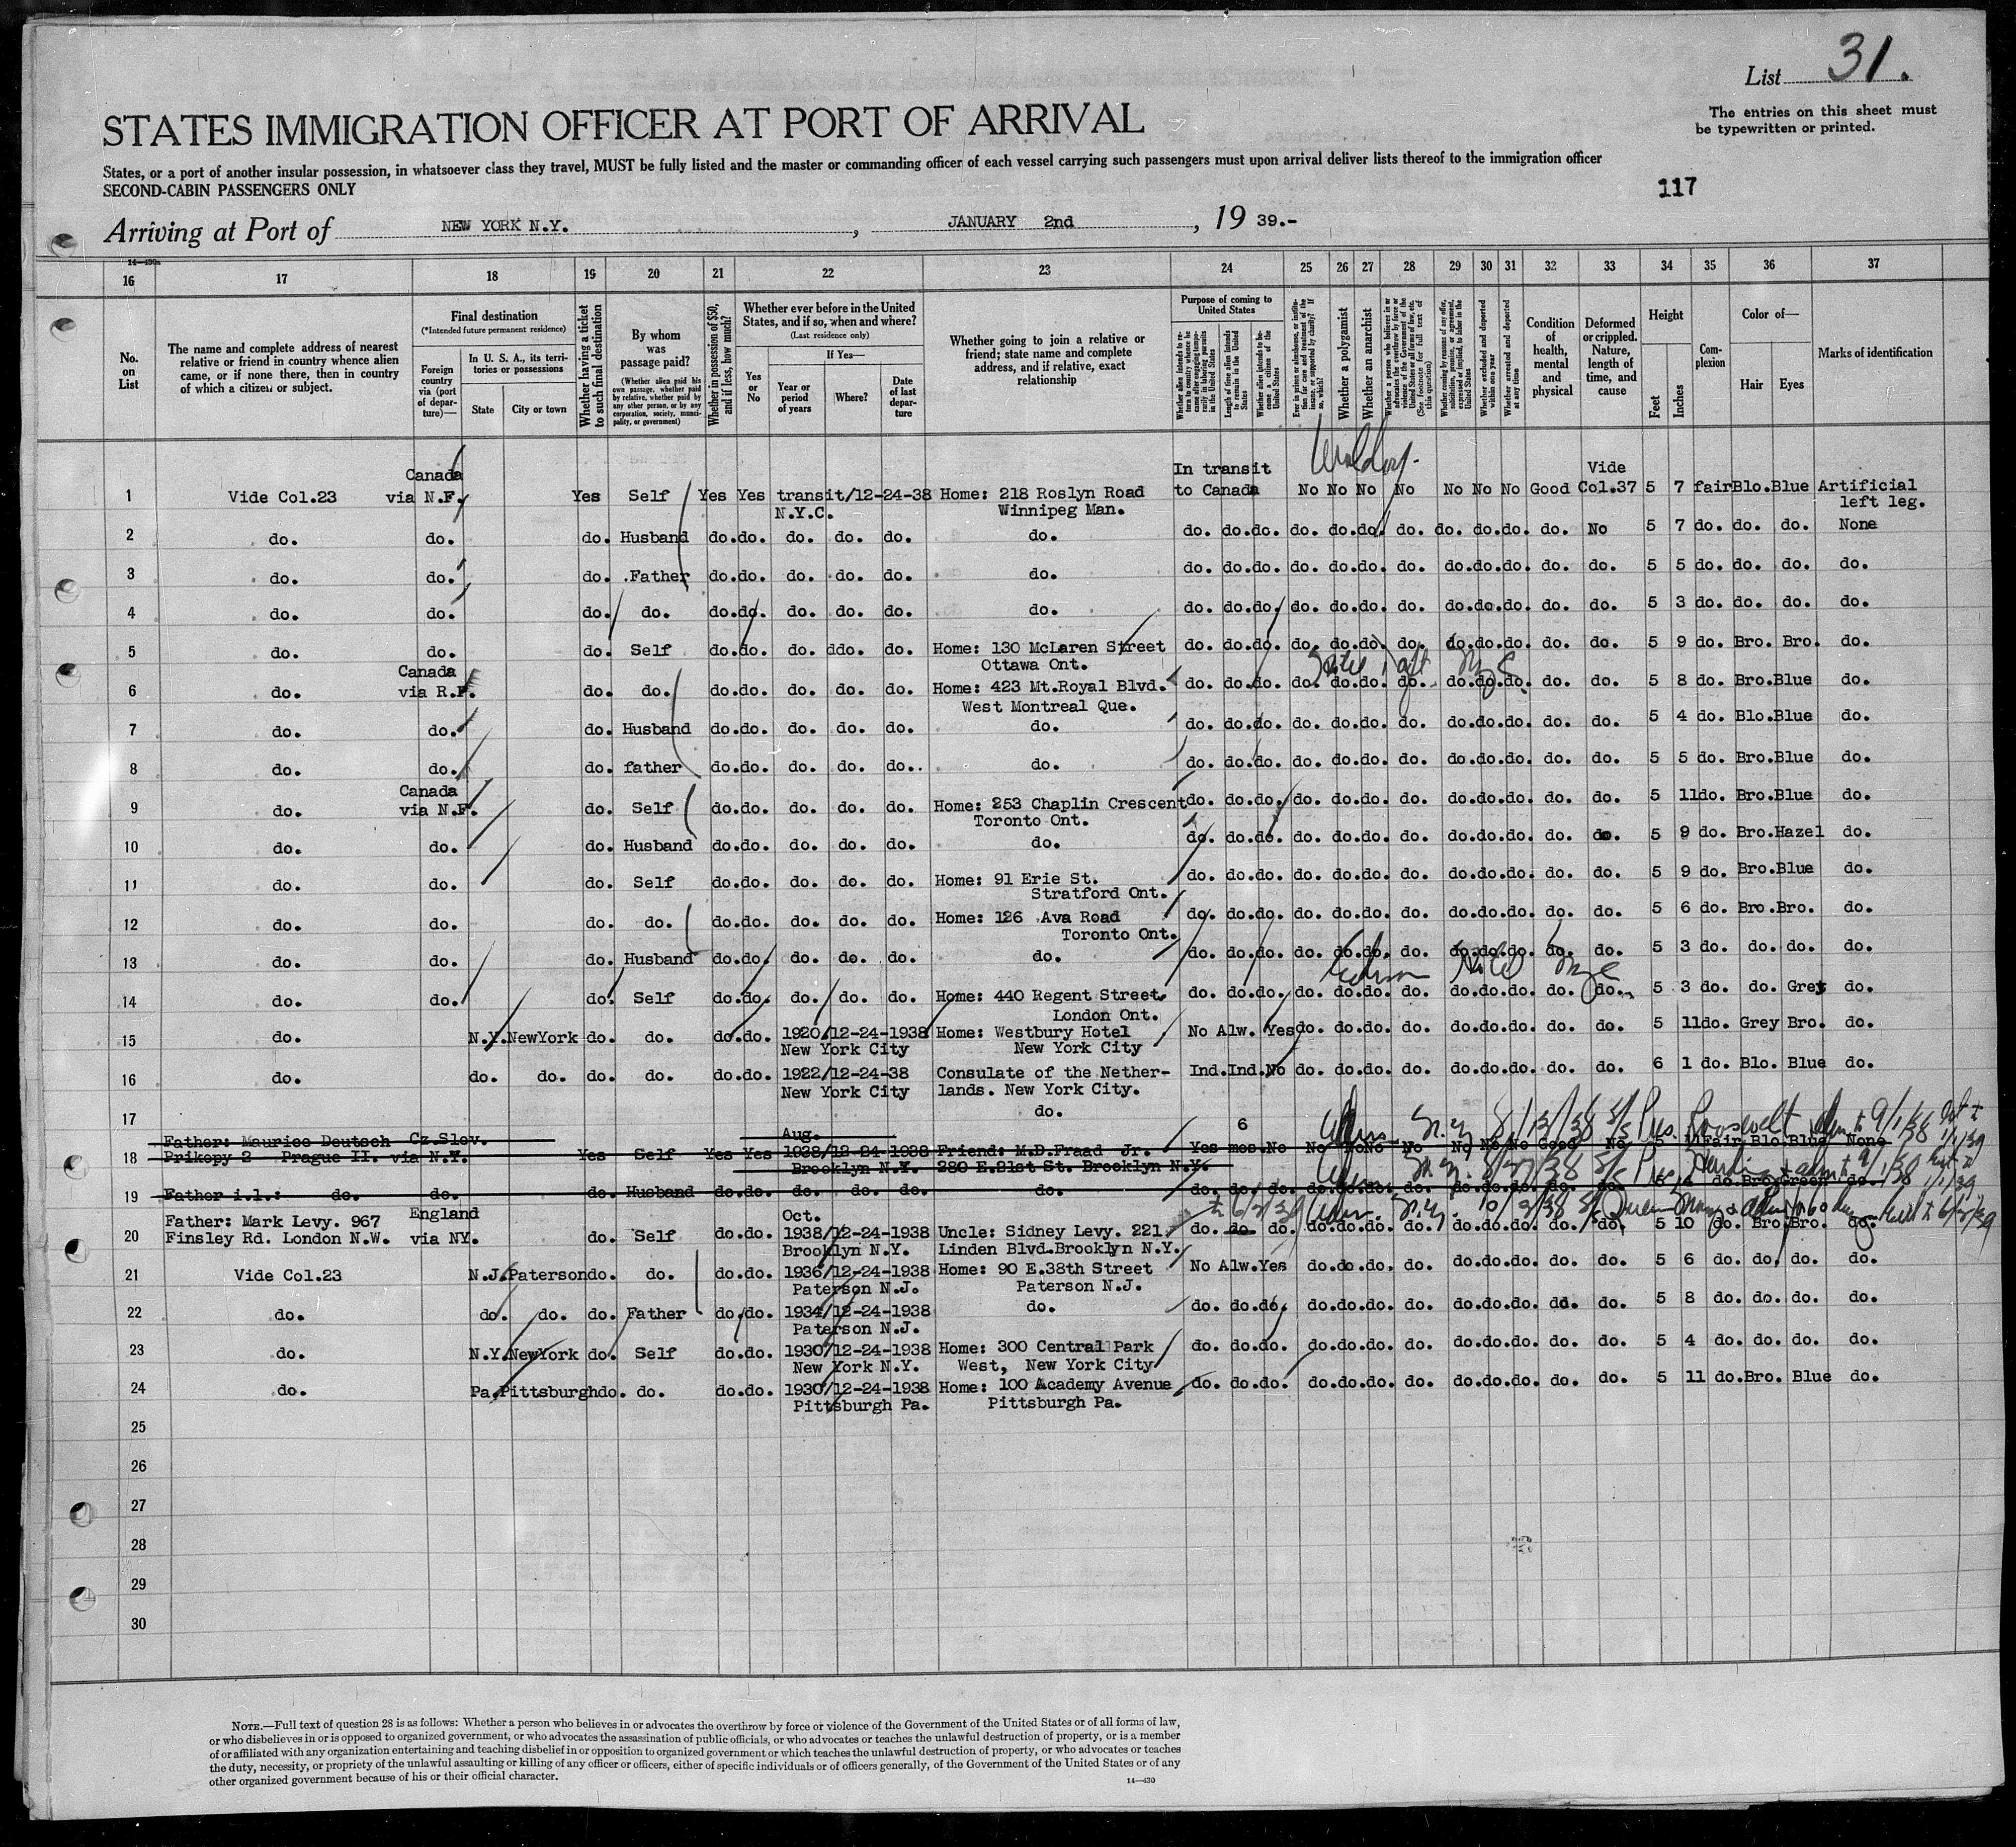 List 31.
The entries on this sheet must
be typewritten or printed.
STATES IMMIGRATION OFFICER AT PORT OF ARRIVAL
States, or a port of another insular possession, in whatsoever class they travel, MUST be fully listed and the master or commanding officer of each vessel carrying such passengers must upon arrival deliver lists thereof to the immigration officer
SECOND-CABIN PASSENGERS ONLY
117
Arriving at Port of NEW YORK N.Y. , JANUARY 2nd , 19 39.-
16 17 18 19 20 21 22 23 24 25 26 27 28 29 30 31 32 33 34 35 36 37
No. on List
The name and complete address of nearest relative or friend in country whence alien came, or if none there, then in country of which a citizen or subject.
Final destination
(*Intended future permanent residence)
Foreign country via (port of departure)—
In U. S. A., its territories or possessions
State City or town
Whether having a ticket to such final destination
By whom was passage paid?
(Whether alien paid his own passage, whether paid by relative, whether paid by any other person, or by any corporation, society, municipality, or government)
Whether in possession of $50, and if less, how much?
Whether ever before in the United States, and if so, when and where?
(Last residence only)
Yes or No
If Yes—
Year or period of years Where? Date of last departure
Whether going to join a relative or friend; state name and complete address, and if relative, exact relationship
Purpose of coming to United States
Length of time alien intends to remain in the United States
Whether alien intends to become a citizen of the United States
Whether a polygamist
Whether an anarchist
Whether excluded and deported within one year
Whether arrested and deported at any time
Condition of health, mental and physical
Deformed or crippled. Nature, length of time, and cause
Height
Feet Inches
Complexion
Color of—
Hair Eyes
Marks of identification
Canada In transit Vide
1 Vide Col.23 via N.F. Yes Self Yes Yes transit/12-24-38 Home: 218 Roslyn Road to Canada No No No No No No No Good Col.37 5 7 fair Blo. Blue Artificial
N.Y.C. Winnipeg Man. left leg.
2 do. do. do. Husband do. do. do. do. do. do. do. do. do. do. do. do. do. do. do. do. do. No 5 7 do. do. do. None
3 do. do. do. .Father do. do. do. do. do. do. do. do. do. do. do. do. do. do. do. do. do. do. 5 5 do. do. do. do.
4 do. do. do. do. do. do. do. do. do. do. do. do. do. do. do. do. do. do. do. do. do. do. 5 3 do. do. do. do.
5 do. do. do. Self do. do. do. ddo. do. Home: 130 McLaren Street do. do. do. do. do. do. do. do. do. do. do. do. 5 9 do. Bro. Bro. do.
Canada Ottawa Ont.
6 do. via R.P. do. do. do. do. do. do. do. Home: 423 Mt.Royal Blvd. do. do. do. do. do. do. do. do. do. do. do. do. 5 8 do. Bro. Blue do.
West Montreal Que.
7 do. do. do. Husband do. do. do. do. do. do. do. do. do. do. do. do. do. do. do. do. do. do. 5 4 do. Blo. Blue do.
8 do. do. do. father do. do. do. do. do.. do. do. do. do. do. do. do. do. do. do. do. do. do. 5 5 do. Bro. Blue do.
Canada
9 do. via N.F. do. Self do. do. do. do. do. Home: 253 Chaplin Crescent do. do. do. do. do. do. do. do. do. do. do. do. 5 11 do. Bro. Blue do.
Toronto Ont.
10 do. do. do. Husband do. do. do. do. do. do. do. do. do. do. do. do. do. do. do. do. do. do. 5 9 do. Bro. Hazel do.
11 do. do. do. Self do. do. do. do. do. Home: 91 Erie St. do. do. do. do. do. do. do. do. do. do. do. do. 5 9 do. Bro. Blue do.
Stratford Ont.
12 do. do. do. do. do. do. do. do. do. Home: 126 Ava Road do. do. do. do. do. do. do. do. do. do. do. do. 5 6 do. Bro. Bro. do.
Toronto Ont.
13 do. do. do. Husband do. do. do. do. do. do. do. do. do. do. do. do. do. do. do. do. do. do. 5 3 do. do. do. do.
14 do. do. do. Self do. do. do. do. do. Home: 440 Regent Street. do. do. do. do. do. do. do. do. do. do. do. do. 5 3 do. do. Grey do.
London Ont.
15 do. N.Y. NewYork do. do. do. do. 1920/12-24-1938 Home: Westbury Hotel No Alw. Yes do. do. do. do. do. do. do. do. do. 5 11 do. Grey Bro. do.
New York City New York City
16 do. do. do. do. do. do. do. 1922/12-24-38 Consulate of the Nether- Ind. Ind. No do. do. do. do. do. do. do. do. do. 6 1 do. Blo. Blue do.
New York City lands. New York City.
17 do.
Father: Maurice Deutsch Cz.Slov. Aug. 6
18 Prikopy 2 Prague II. via N.Y. Yes Self Yes Yes 1938/12-24-1938 Friend: M.D.Fraad Jr. Yes mos. No No No No No No No No Good No 5 11 Fair Blo. Blue None
Brooklyn N.Y. 280 E.21st St. Brooklyn N.Y.
19 Father i.l.: do. do. do. Husband do. do. do. do. do. do. do. do. do. do. do. do. do. do. do. do. do. do. 5 4 do. Bro. Green do.
Father: Mark Levy. 967 England Oct.
20 Finsley Rd. London N.W. via NY. do. Self do. do. 1938/12-24-1938 Uncle: Sidney Levy. 221 do. do. do. do. do. do. do. do. do. do. do. do. 5 10 do. Bro. Bro. do.
Brooklyn N.Y. Linden Blvd.Brooklyn N.Y.
21 Vide Col.23 N.J. Paterson do. do. do. do. 1936/12-24-1938 Home: 90 E.38th Street No Alw. Yes do. do. do. do. do. do. do. do. do. 5 6 do. do. do. do.
Paterson N.J. Paterson N.J.
22 do. do. do. do. Father do. do. 1934/12-24-1938 do. do. do. do. do. do. do. do. do. do. do. dd. do. 5 8 do. do. do. do.
Paterson N.J.
23 do. N.Y. NewYork do. Self do. do. 1930/12-24-1938 Home: 300 Central Park do. do. do. do. do. do. do. do. do. do. do. do. 5 4 do. do. do. do.
New York N.Y. West, New York City
24 do. Pa. Pittsburgh do. do. do. do. 1930/12-24-1938 Home: 100 Academy Avenue do. do. do. do. do. do. do. do. do. do. do. do. 5 11 do. Bro. Blue do.
Pittsburgh Pa. Pittsburgh Pa.
25
26
27
28
29
30
NOTE.—Full text of question 28 is as follows: Whether a person who believes in or advocates the overthrow by force or violence of the Government of the United States or of all forms of law,
or who disbelieves in or is opposed to organized government, or who advocates the assassination of public officials, or who advocates or teaches the unlawful destruction of property, or is a member
of or affiliated with any organization entertaining and teaching disbelief in or opposition to organized government or which teaches the unlawful destruction of property, or who advocates or teaches
the duty, necessity, or propriety of the unlawful assaulting or killing of any officer or officers, either of specific individuals or of officers generally, of the Government of the United States or of any
other organized government because of his or their official character.
14—430